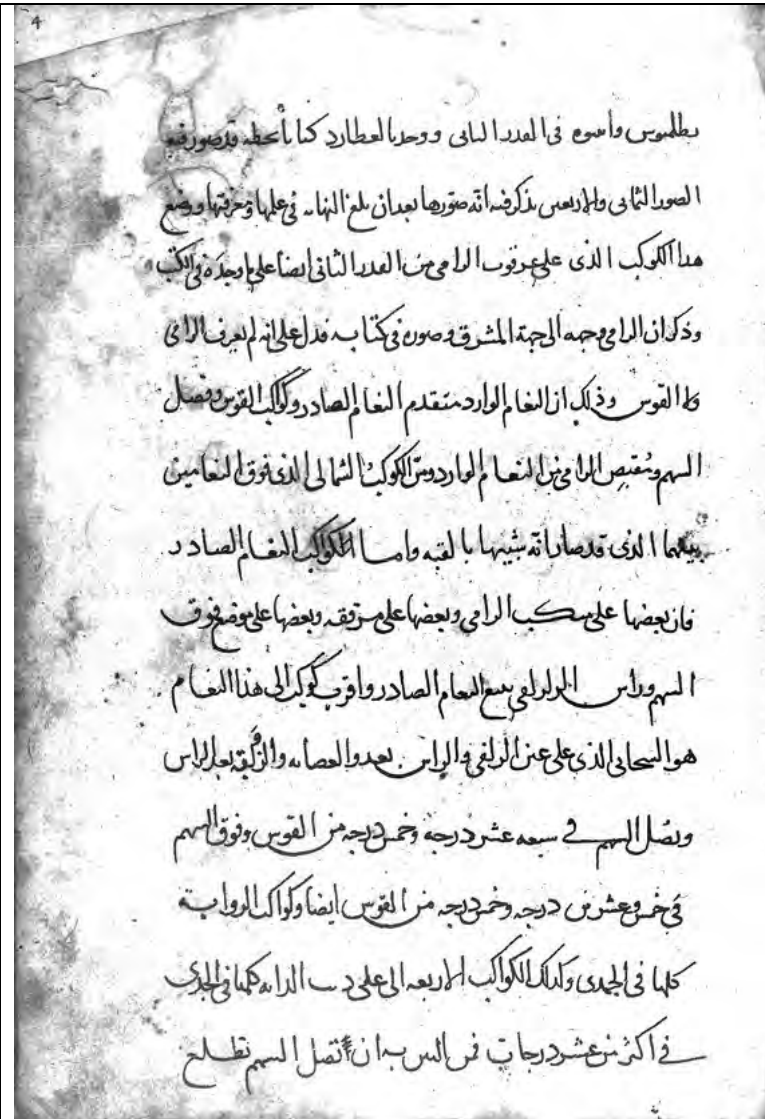 4
بطلميوس واسوه في القدر الثاني ووجدنا لعطارد كتابا بخطه قد صور فيه
الصور الثماني والاربعين يذكر فيه انه صورها بعد ان بلغ النهاية في علمها ومعرفتها ووضع
هذا الكوكب الذي على عرقوب الرامي من القدر الثاني ايضا على ما وجده في الكتب
وذكر ان الرامي وجهه الى جهة المشرق وصوره في كتابه فدل على انه لم يعرف الرامي
ولا القوس وذلك ان النعام الوارد متقدم النعام الصادر وكواكب القوس ونصل
السهم ومقبض الرامي من النعام الوارد ومن الكوكب الشمالي الذي فوق النعامين
بينهما الذي قد صارا به شبيها بالقبه واما الكواكب النعام الصادر
فان بعضها على منكب الرامي وبعضها على مرفقه وبعضها على موضع فوق
السهم وراس الرامي يتبع النعام الصادر واقرب كوكب الى هذا النعام
هو السحابي الذي على عين الرامي والراس بعد والعصابه بعد الراس
ونصل السهم في سبعه عشر درجة وخمس درجه من القوس وفوق السهم
في خمس وعشرين درجه وخمس درجه من القوس ايضا وكواكب الذوابة
كلها في الجدي وكذلك الكواكب الاربعه التي على ذنب الدابه كلها في الجدي
في اكثر من عشر درجات فمن البين به ان نصل السهم تطلع